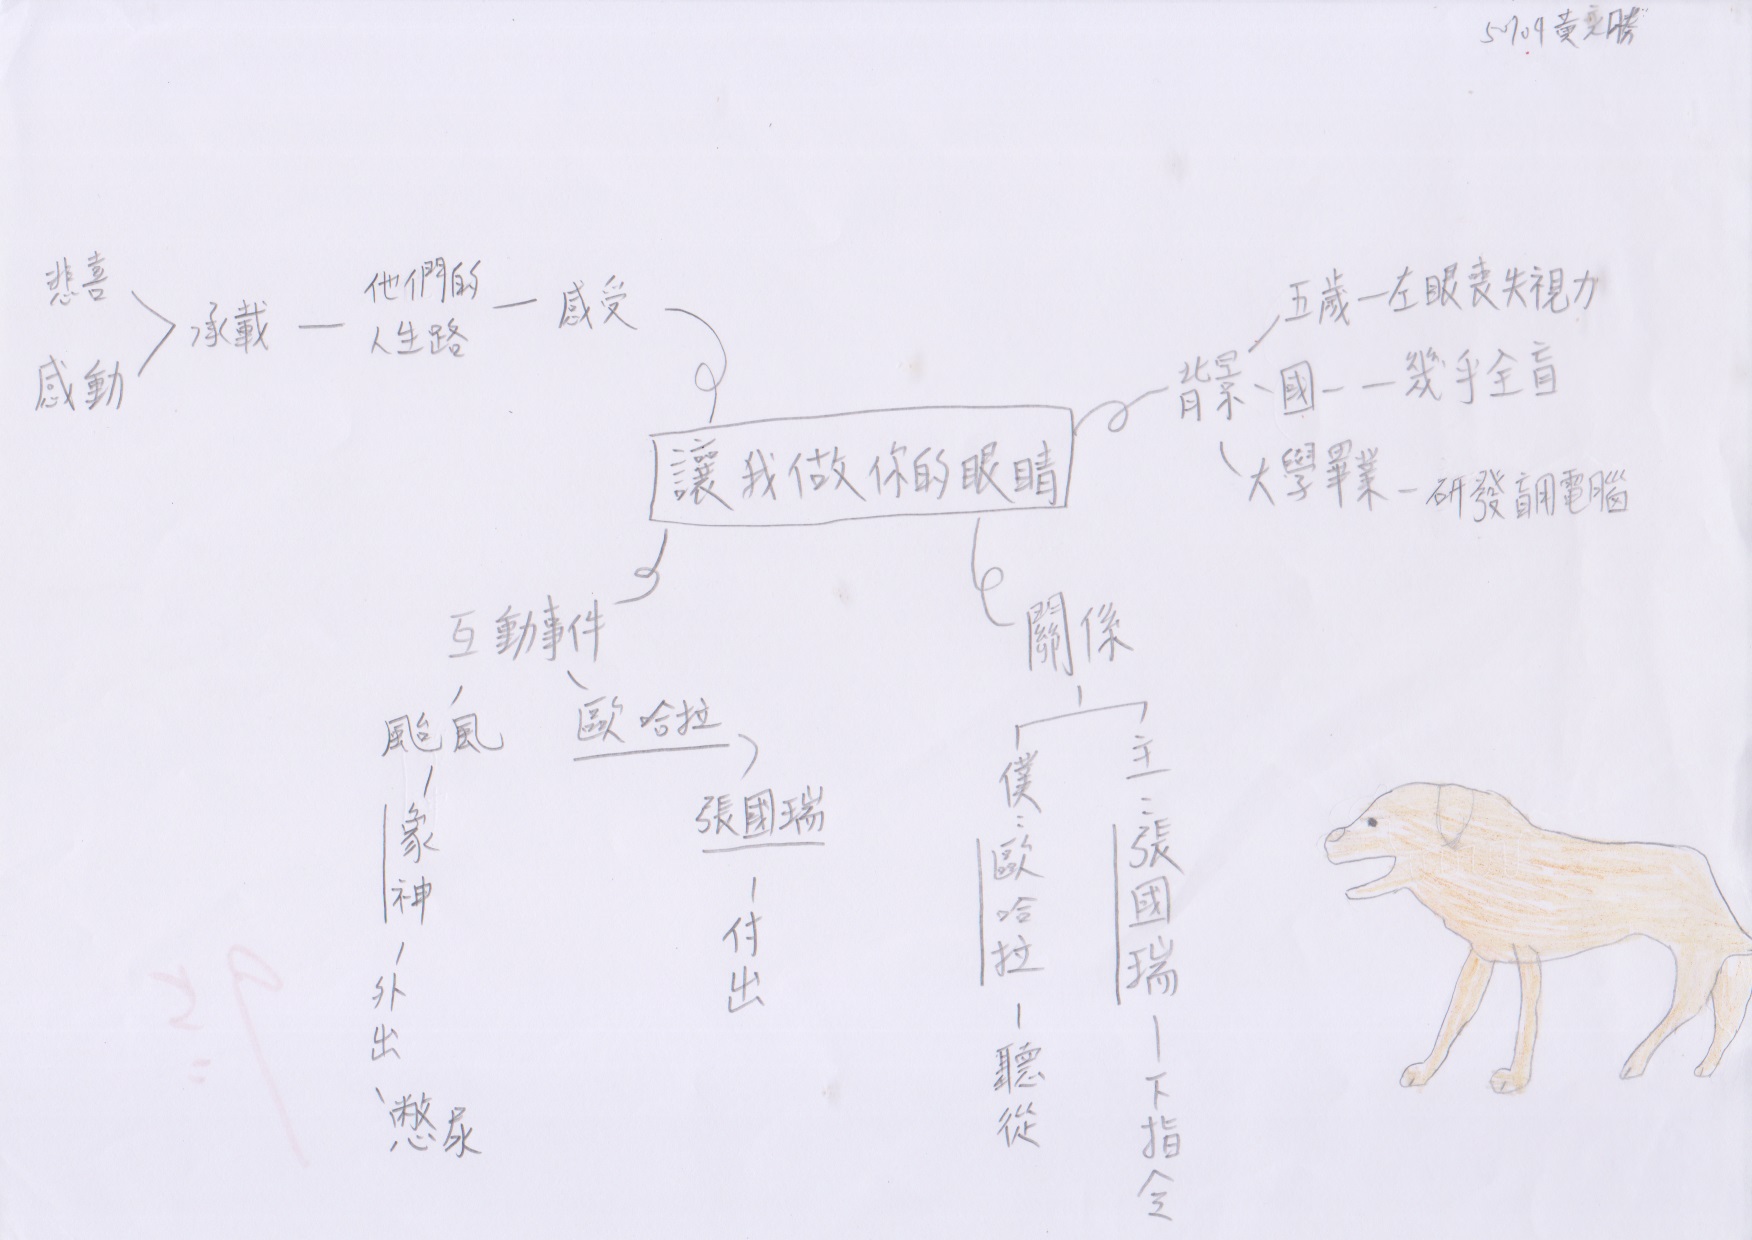 50704黃奕勝
讓我做你的眼睛
背景
五歲－左眼喪失視力
國一－幾乎全盲
大學畢業－研發盲用電腦
關係
主：張國瑞－下指令
僕：歐哈拉－聽從
互動事件
歐哈拉
張國瑞
付出
颱風
象神
外出
憋尿
感受
他們的
人生路
承載
悲喜
感動